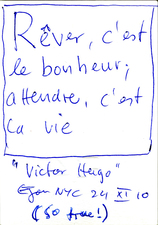 Rêver, c'est
le bonheur;
attendre, c'est
la vie
"Victor Hugo"
NYC 24 XI 10
(So true!)